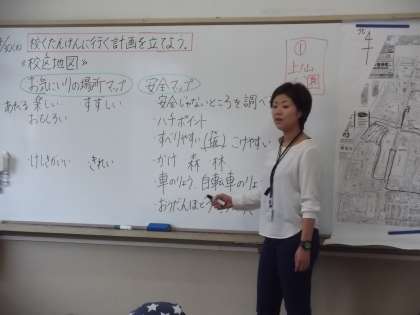 校くたんけんに行く計画を立てよう。
《校区地図》
お気にいりの場所マップ
あそべる 楽しい すずしい
おもしろい
けしきがいい きれい
安全マップ
安全じゃないところを調べ
・ハチポイント
・すべりやすい(坂) こけやすい
・がけ 森 林
・車のりょう、自転車のりょ
・おうだんほどう
①